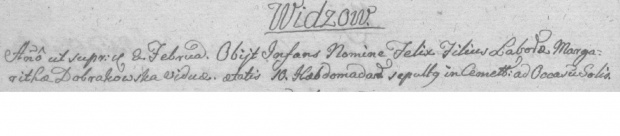 Widzow.
Año ut supr: 2 Februa. Obijt Infans Nomine Felix Filius Laboræ Marga-
rithæ Dobrakowska viduæ ætatis 10. Hebdomadarū sepultq in Cemett: ad Occasū Solis.